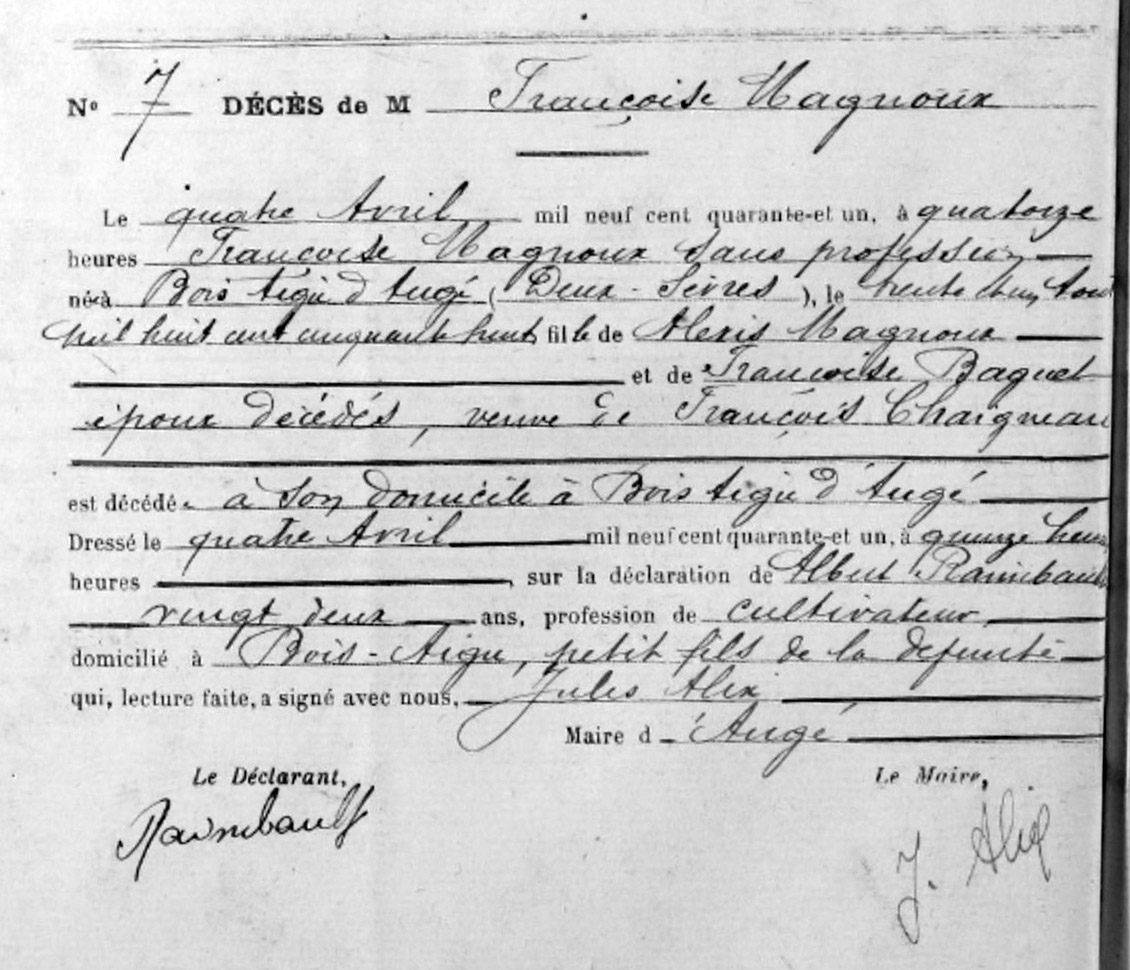 N° 7 DÉCÈS de M Françoise Magnoux
Le quatre Avril mil neuf cent quarante-et un, à quatorze
heures Françoise Magnoux sans profession
née à Bois Aigu d'Augé (Deux-Sèvres), le trente et un Août
mil huit cent cinquante huit, fille de Alexis Magnoux
et de Françoise Baguet
époux décédés, veuve de François Chaigneau
est décédée à son domicile à Bois Aigu d'Augé
Dressé le quatre Avril mil neuf cent quarante-et un, à quinze heures
heures , sur la déclaration de Albert Raimbault
vingt deux ans, profession de cultivateur
domicilié à Bois-Aigu, petit fils de la défunte
qui, lecture faite, a signé avec nous, Jules Alix
Maire d'Augé
Le Déclarant, Le Maire,
Raimbault J. Alix